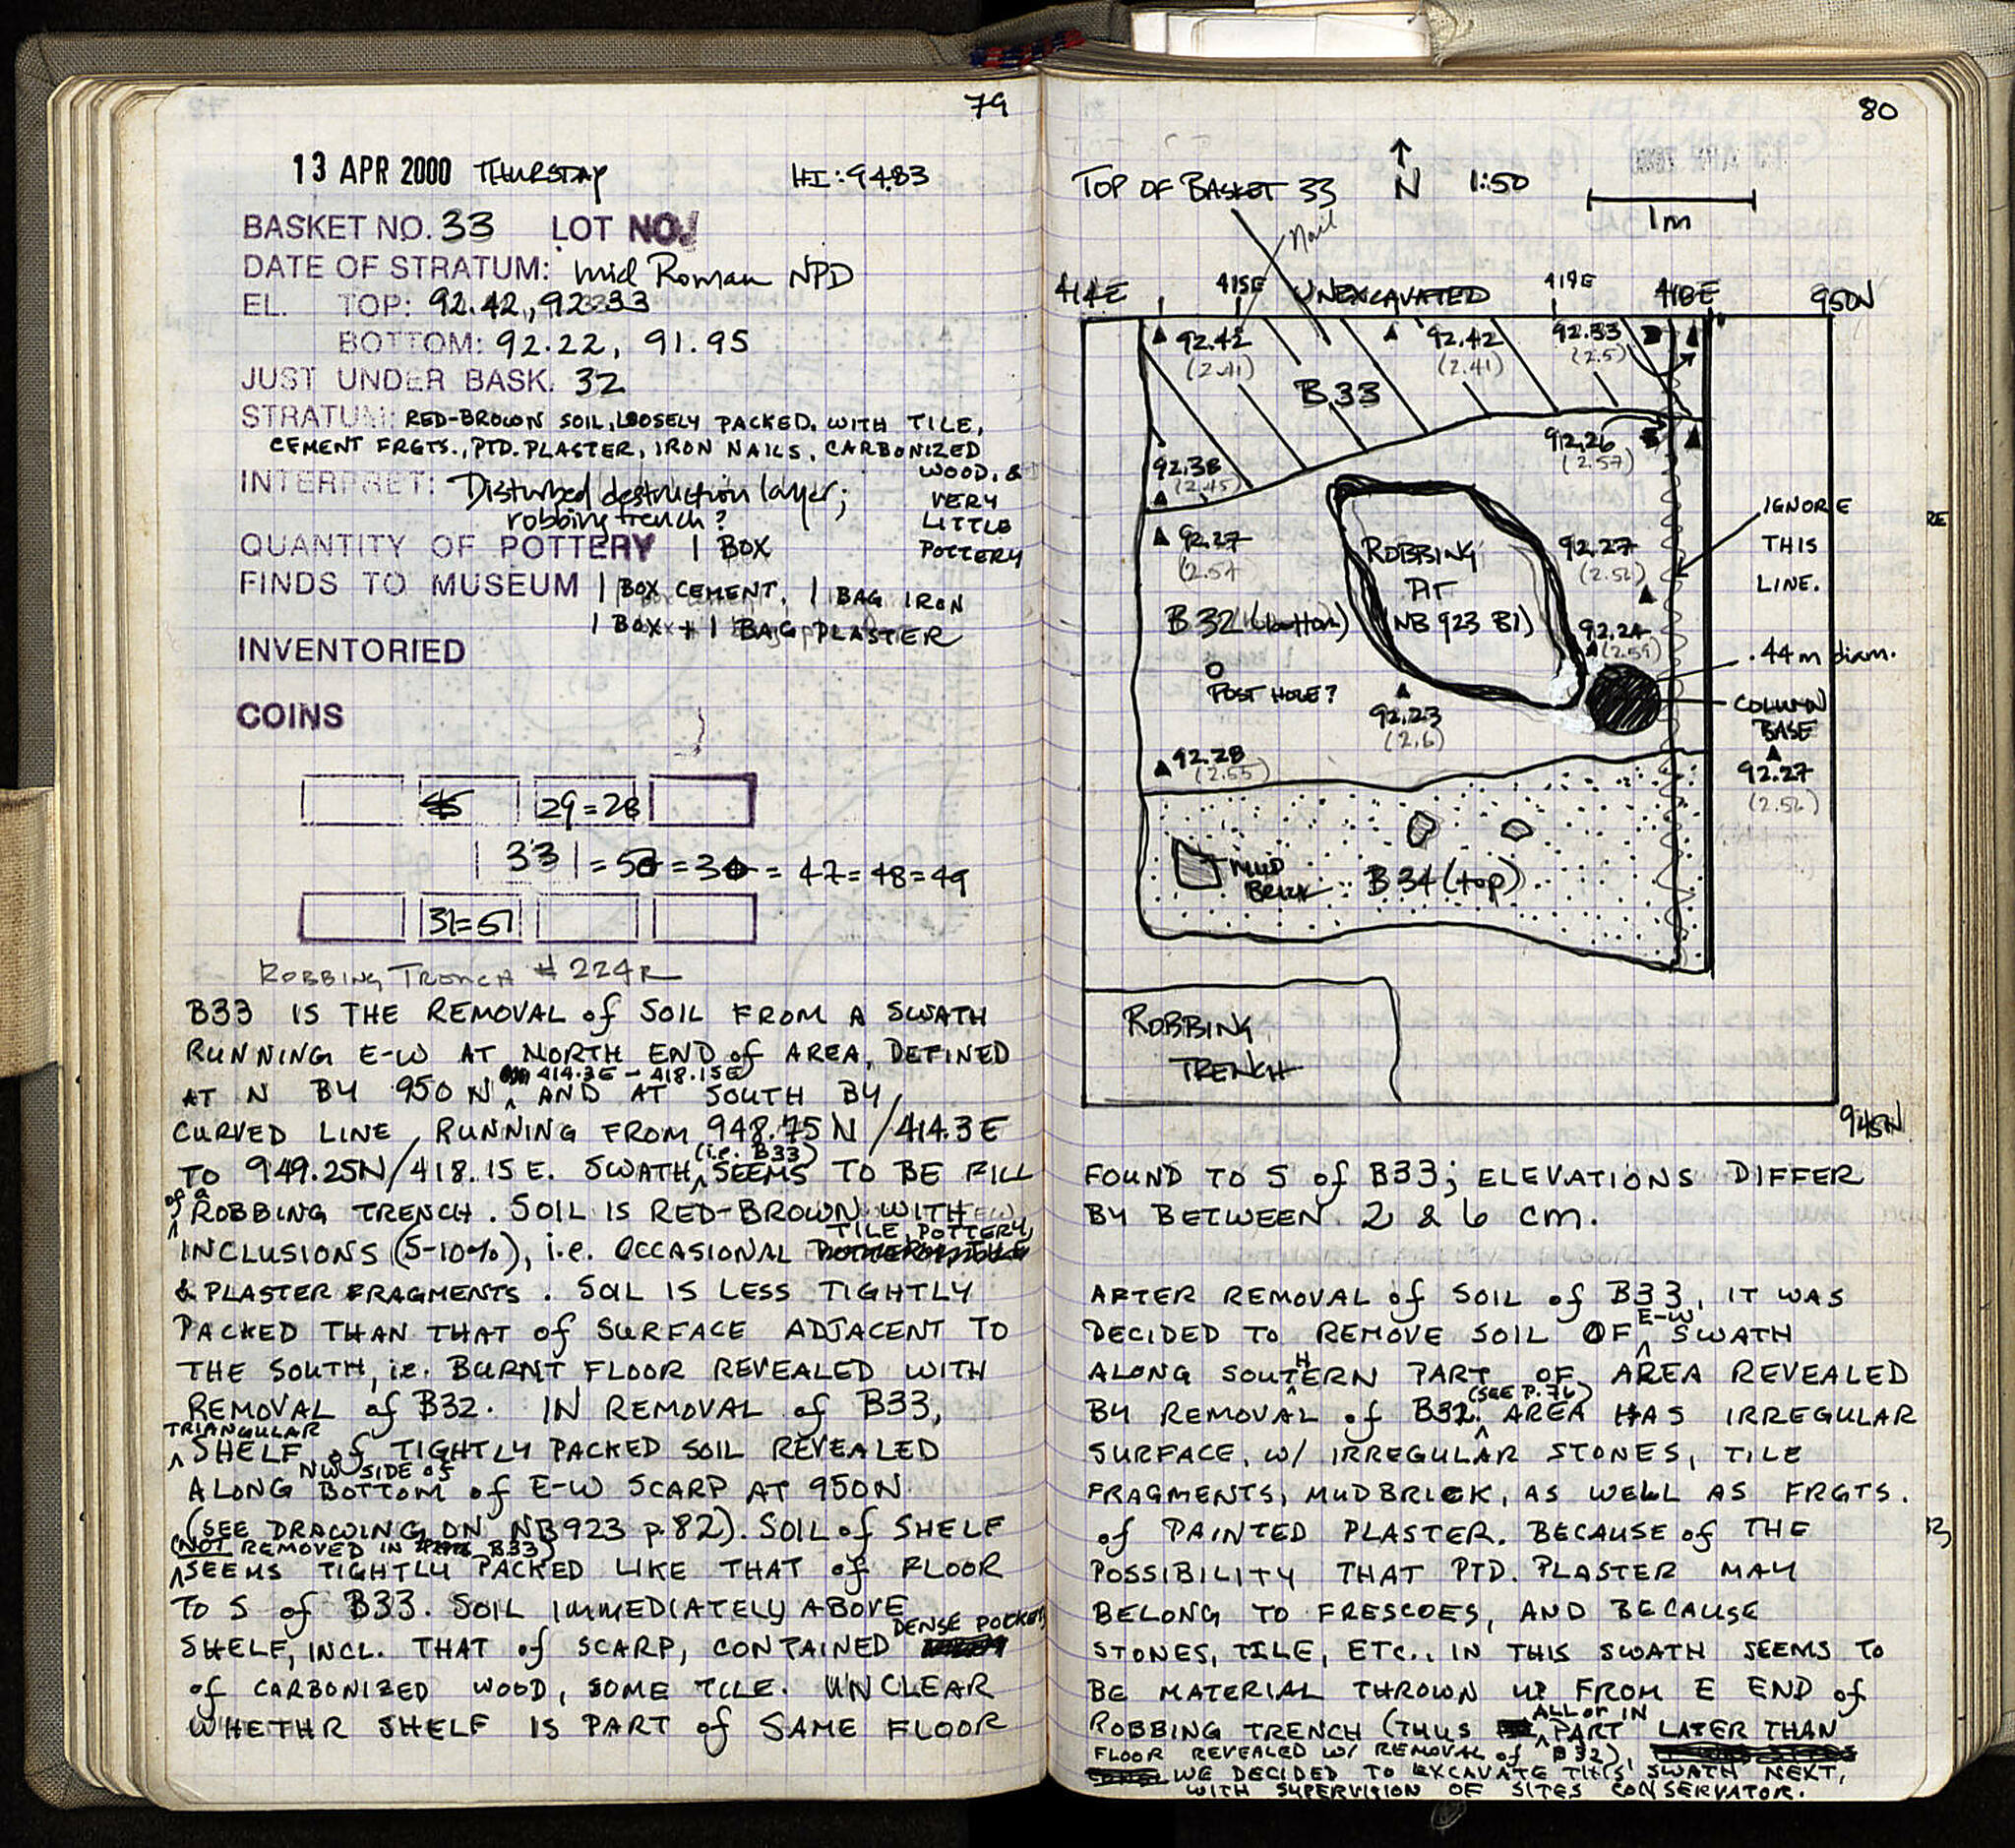 79
13 APR 2000 THURSDAY HI: 94.83
BASKET NO. 33 LOT NO.
DATE OF STRATUM: mid Roman NPD
EL. TOP: 92.42, 92.33
BOTTOM: 92.22, 91.95
JUST UNDER BASK. 32
STRATUM: RED-BROWN SOIL, LOOSELY PACKED, WITH TILE,
CEMENT FRGTS., PTD. PLASTER, IRON NAILS, CARBONIZED
WOOD, &
VERY
LITTLE
POTTERY
INTERPRET: Disturbed destruction layer;
robbing trench?
QUANTITY OF POTTERY 1 BOX
FINDS TO MUSEUM 1 BOX CEMENT, 1 BAG IRON
1 BOX + 1 BAG PLASTER
INVENTORIED
COINS
29=28
33 = 50 = 30 = 47=48=49
31=51
ROBBING TRENCH # 224R
B33 IS THE REMOVAL of SOIL FROM A SWATH
RUNNING E-W AT NORTH END of AREA, DEFINED
AT N BY 950 N 414.3E - 418.15E AND AT SOUTH BY
CURVED LINE, RUNNING FROM 948.75N/414.3E
TO 949.25N/418.15E. SWATH (i.e. B33) SEEMS TO BE FILL
of a ROBBING TRENCH. SOIL IS RED-BROWN WITH FEW
INCLUSIONS (5-10%), i.e. OCCASIONAL TILE, POTTERY,
& PLASTER FRAGMENTS. SOIL IS LESS TIGHTLY
PACKED THAN THAT of SURFACE ADJACENT TO
THE SOUTH, i.e. BURNT FLOOR REVEALED WITH
REMOVAL of B32. IN REMOVAL of B33,
TRIANGULAR SHELF of TIGHTLY PACKED SOIL REVEALED
ALONG NW SIDE of BOTTOM of E-W SCARP AT 950N
(SEE DRAWING ON NB923 p.82). SOIL of SHELF
(NOT REMOVED IN B33) SEEMS TIGHTLY PACKED LIKE THAT of FLOOR
TO S of B33. SOIL IMMEDIATELY ABOVE
SHELF, INCL. THAT of SCARP, CONTAINED DENSE POCKET
of CARBONIZED WOOD, SOME TILE. UNCLEAR
WHETHR SHELF IS PART of SAME FLOOR
80
TOP OF BASKET 33 N 1:50
1m
Nail
414E 415E UNEXCAVATED 417E 418E 950N
92.42 (2.41)
92.42 (2.41)
92.33 (2.5)
B33
92.26 (2.57)
92.38 (2.45)
92.27 (2.57)
ROBBING
PIT
(NB 923 B1)
92.27 (2.56)
IGNORE
THIS
LINE.
B32 (bottom)
92.24 (2.59)
.44m diam.
POST HOLE?
92.23 (2.6)
COLUMN
BASE
92.28 (2.55)
92.27 (2.56)
MUD
BRICK
B34 (top)
ROBBING
TRENCH
945N
FOUND TO S of B33; ELEVATIONS DIFFER
BY BETWEEN 2 & 6 cm.
AFTER REMOVAL of SOIL of B33, IT WAS
DECIDED TO REMOVE SOIL OF E-W SWATH
ALONG SOUTHERN PART OF AREA REVEALED
BY REMOVAL of B32. (SEE P.76) AREA HAS IRREGULAR
SURFACE, W/ IRREGULAR STONES, TILE
FRAGMENTS, MUDBRICK, AS WELL AS FRGTS.
of PAINTED PLASTER. BECAUSE of THE
POSSIBILITY THAT PTD. PLASTER MAY
BELONG TO FRESCOES, AND BECAUSE
STONES, TILE, ETC., IN THIS SWATH SEEMS TO
BE MATERIAL THROWN UP FROM E END of
ROBBING TRENCH (THUS ALL or IN PART LATER THAN
FLOOR REVEALED W/ REMOVAL of B32),
WE DECIDED TO EXCAVATE THIS SWATH NEXT,
WITH SUPERVISION OF SITES CONSERVATOR.